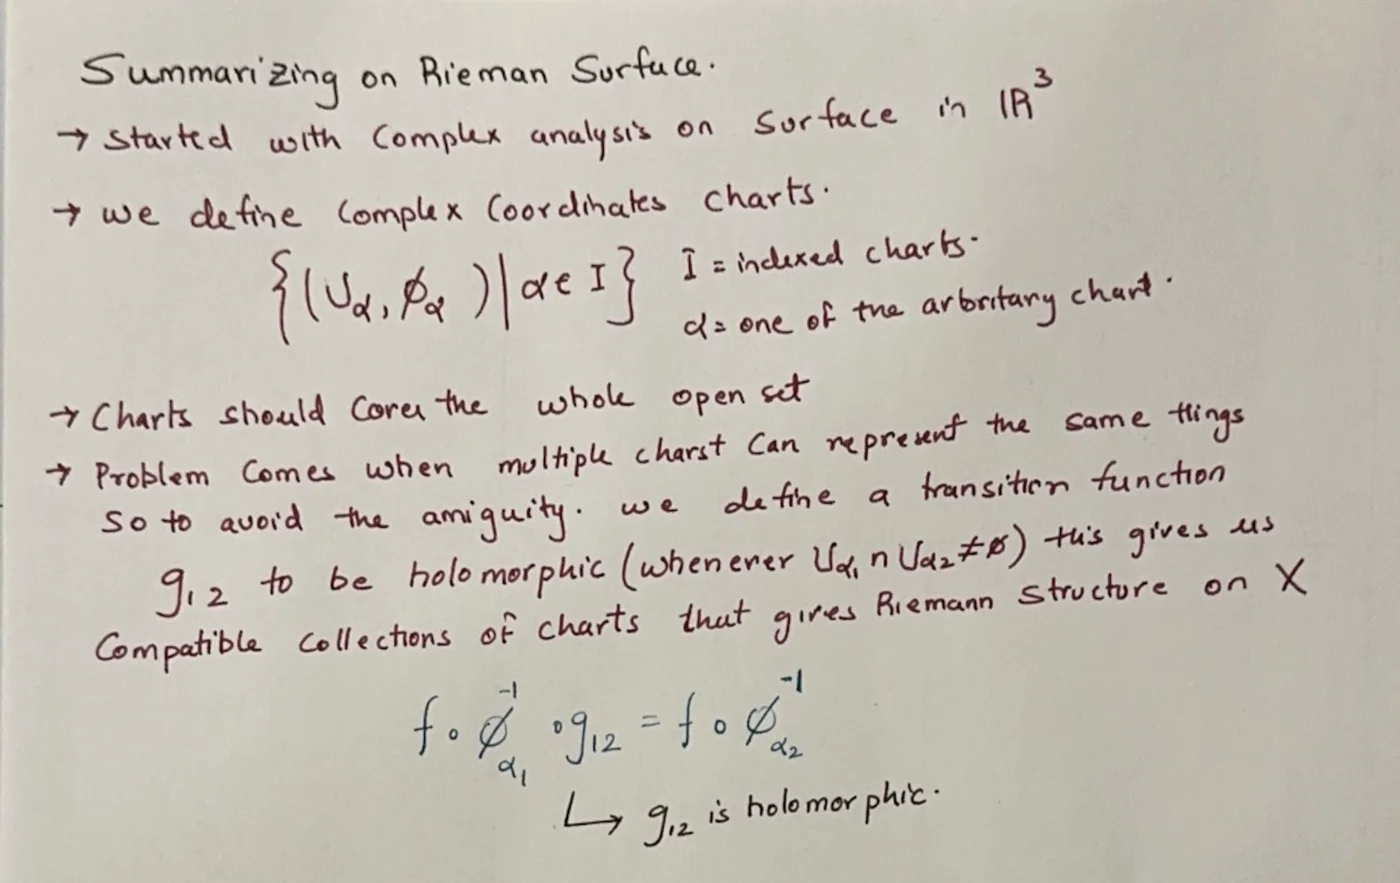 Summarizing on Rieman Surface.
→ Started with Complex analysis on Surface in ℝ³
→ we define Complex Coordinates Charts.
{(Uα, φα) | α ∈ I} I = indexed charts.
α = one of the arbritary chart.
→ Charts should Cover the whole open set
→ Problem Comes when multiple charst Can represent the same things
So to avoid the amiguity. we define a transition function
g₁₂ to be holomorphic (whenever Uα₁ ∩ Uα₂ ≠ ø) this gives us
Compatible Collections of charts that gives Riemann Structure on X
f ∘ φ⁻¹α₁ ∘ g₁₂ = f ∘ φ⁻¹α₂
↳ g₁₂ is holomorphic.